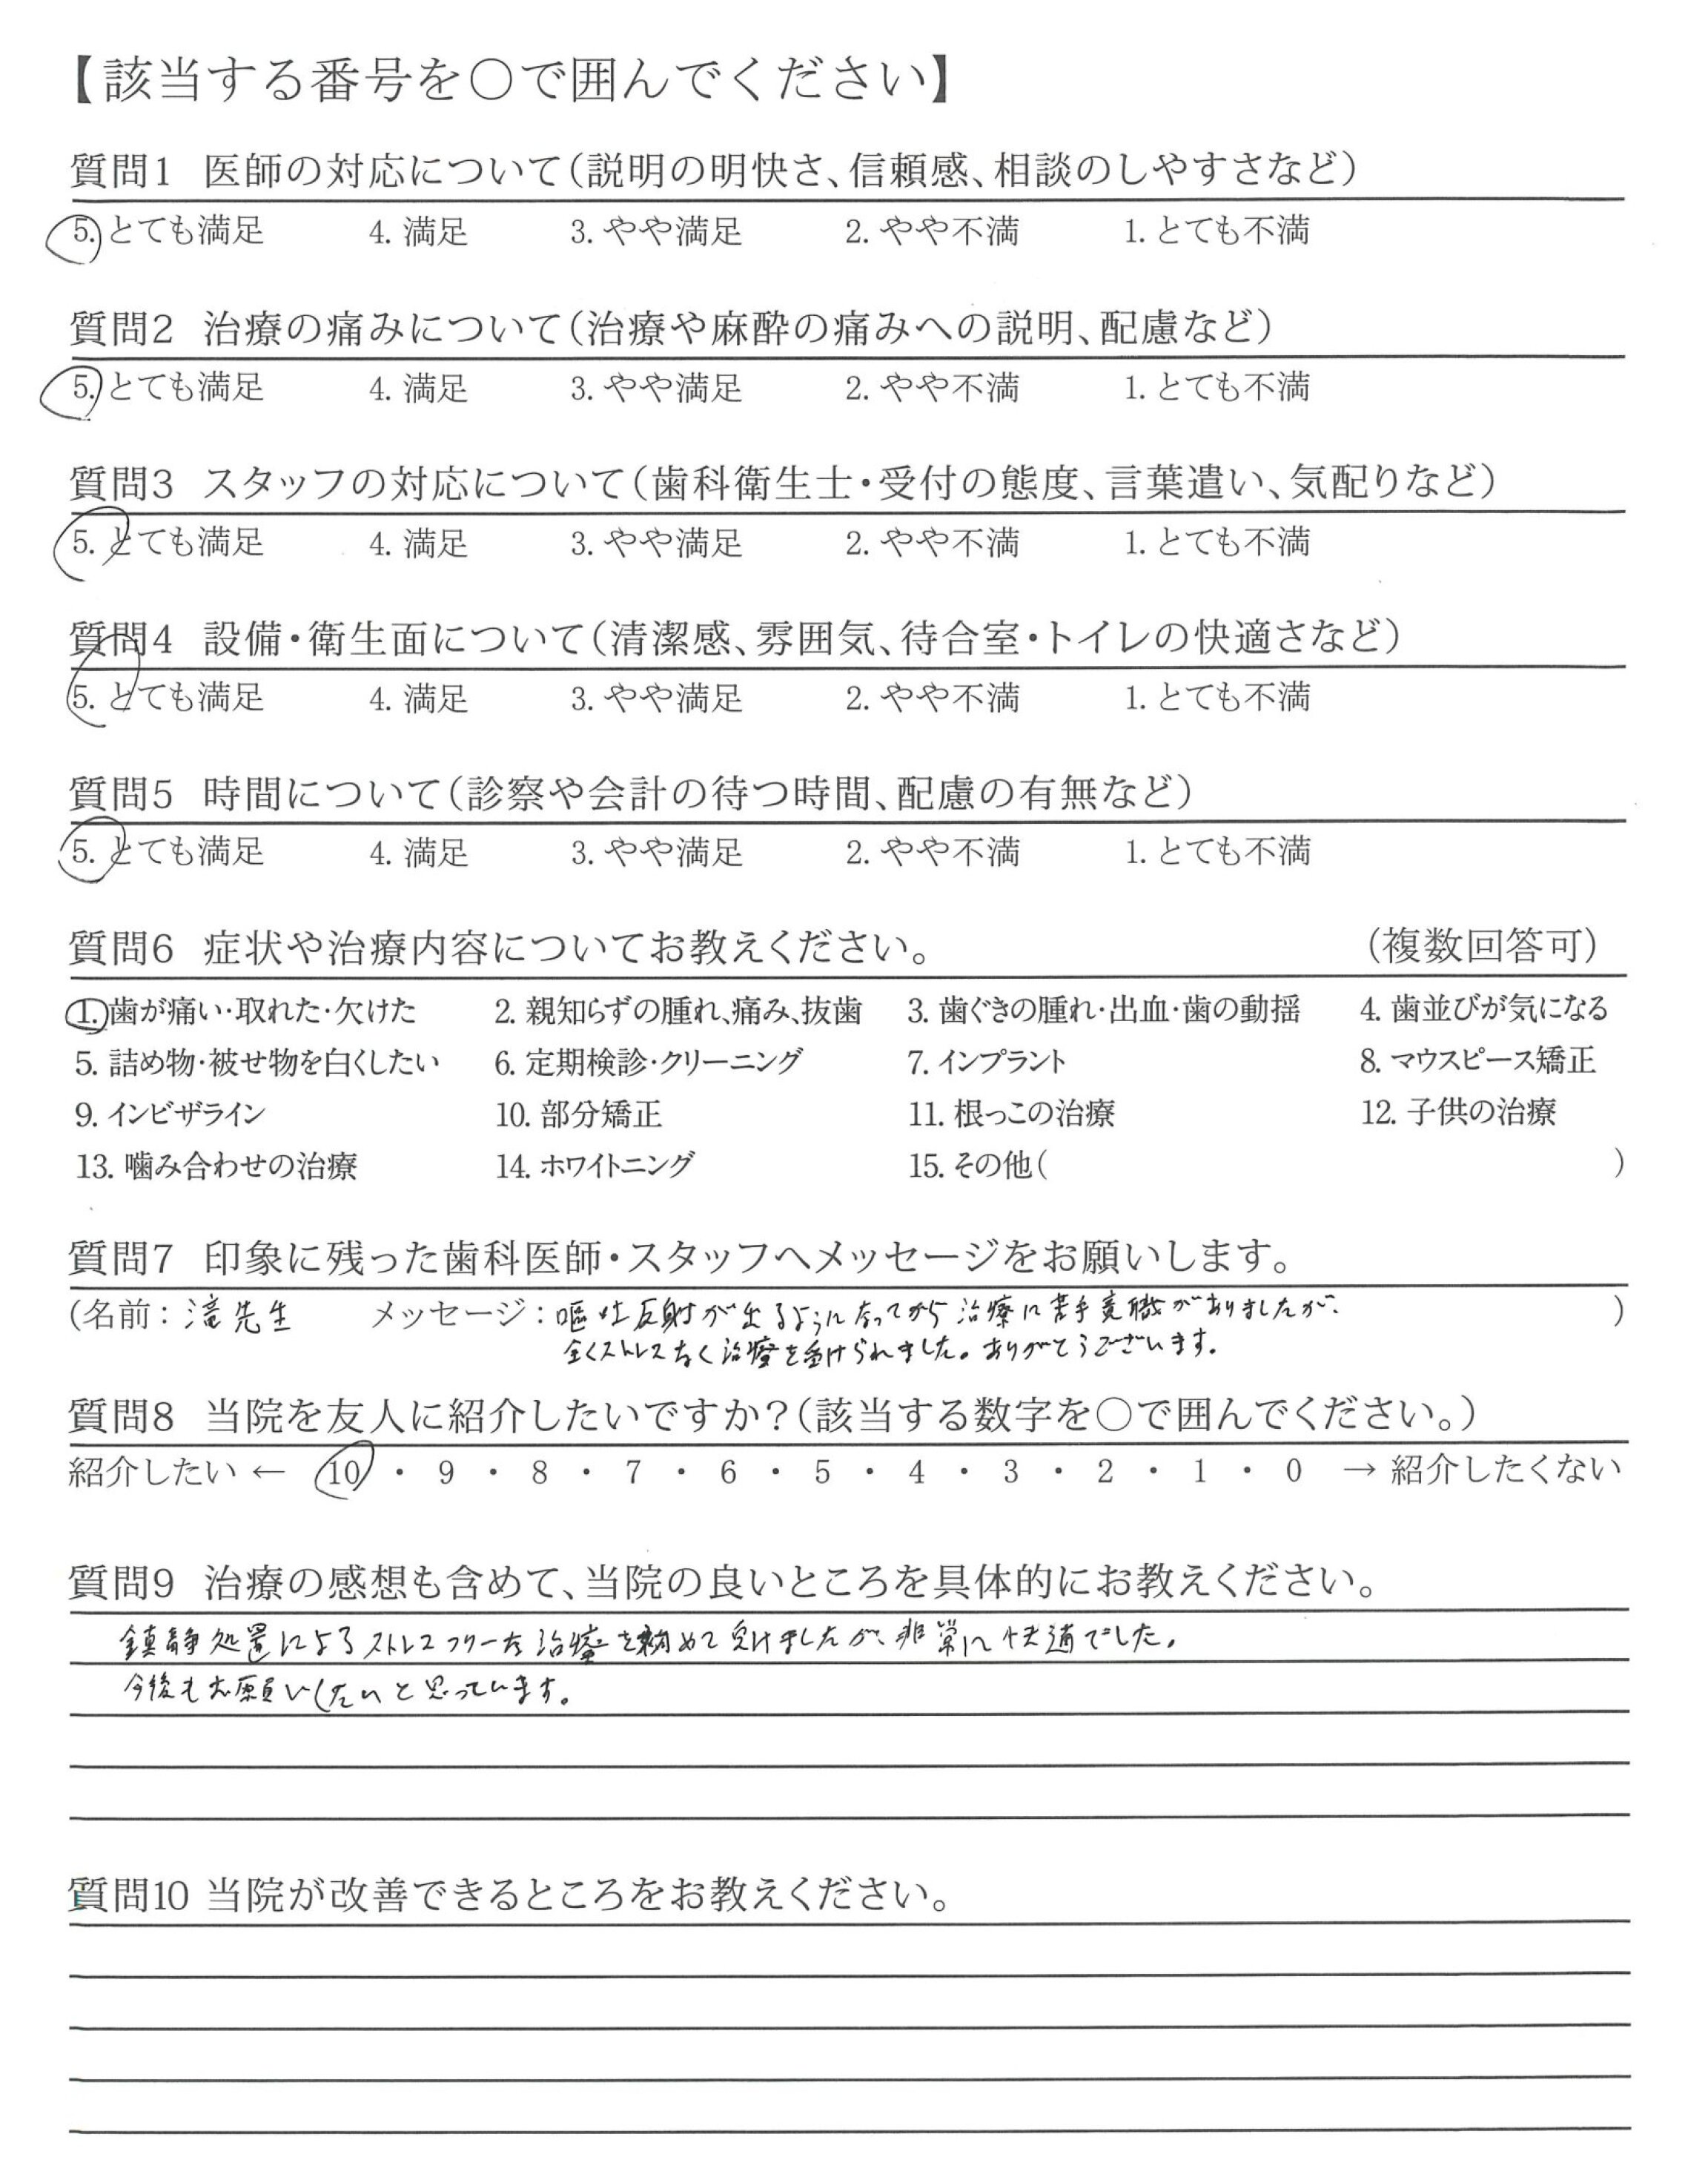 【該当する番号を○で囲んでください】
質問1 医師の対応について(説明の明快さ、信頼感、相談のしやすさなど)
5. とても満足 4. 満足 3. やや満足 2. やや不満 1. とても不満
質問2 治療の痛みについて(治療や麻酔の痛みへの説明、配慮など)
5. とても満足 4. 満足 3. やや満足 2. やや不満 1. とても不満
質問3 スタッフの対応について(歯科衛生士・受付の態度、言葉遣い、気配りなど)
5. とても満足 4. 満足 3. やや満足 2. やや不満 1. とても不満
質問4 設備・衛生面について(清潔感、雰囲気、待合室・トイレの快適さなど)
5. とても満足 4. 満足 3. やや満足 2. やや不満 1. とても不満
質問5 時間について(診察や会計の待つ時間、配慮の有無など)
5. とても満足 4. 満足 3. やや満足 2. やや不満 1. とても不満
質問6 症状や治療内容についてお教えください。 (複数回答可)
1. 歯が痛い・取れた・欠けた 2. 親知らずの腫れ、痛み、抜歯 3. 歯ぐきの腫れ・出血・歯の動揺 4. 歯並びが気になる
5. 詰め物・被せ物を白くしたい 6. 定期検診・クリーニング 7. インプラント 8. マウスピース矯正
9. インビザライン 10. 部分矯正 11. 根っこの治療 12. 子供の治療
13. 噛み合わせの治療 14. ホワイトニング 15. その他( )
質問7 印象に残った歯科医師・スタッフへメッセージをお願いします。
(名前:滝先生 メッセージ:嘔吐反射が出るようになってから治療に苦手意識がありましたが、 )
全くストレスなく治療を受けられました。ありがとうございます。
質問8 当院を友人に紹介したいですか?(該当する数字を○で囲んでください。)
紹介したい ← 10 ・ 9 ・ 8 ・ 7 ・ 6 ・ 5 ・ 4 ・ 3 ・ 2 ・ 1 ・ 0 → 紹介したくない
質問9 治療の感想も含めて、当院の良いところを具体的にお教えください。
鎮静処置によるストレスフリーな治療を初めて受けましたが、非常に快適でした。
今後もお願いしたいと思っています。
質問10 当院が改善できるところをお教えください。